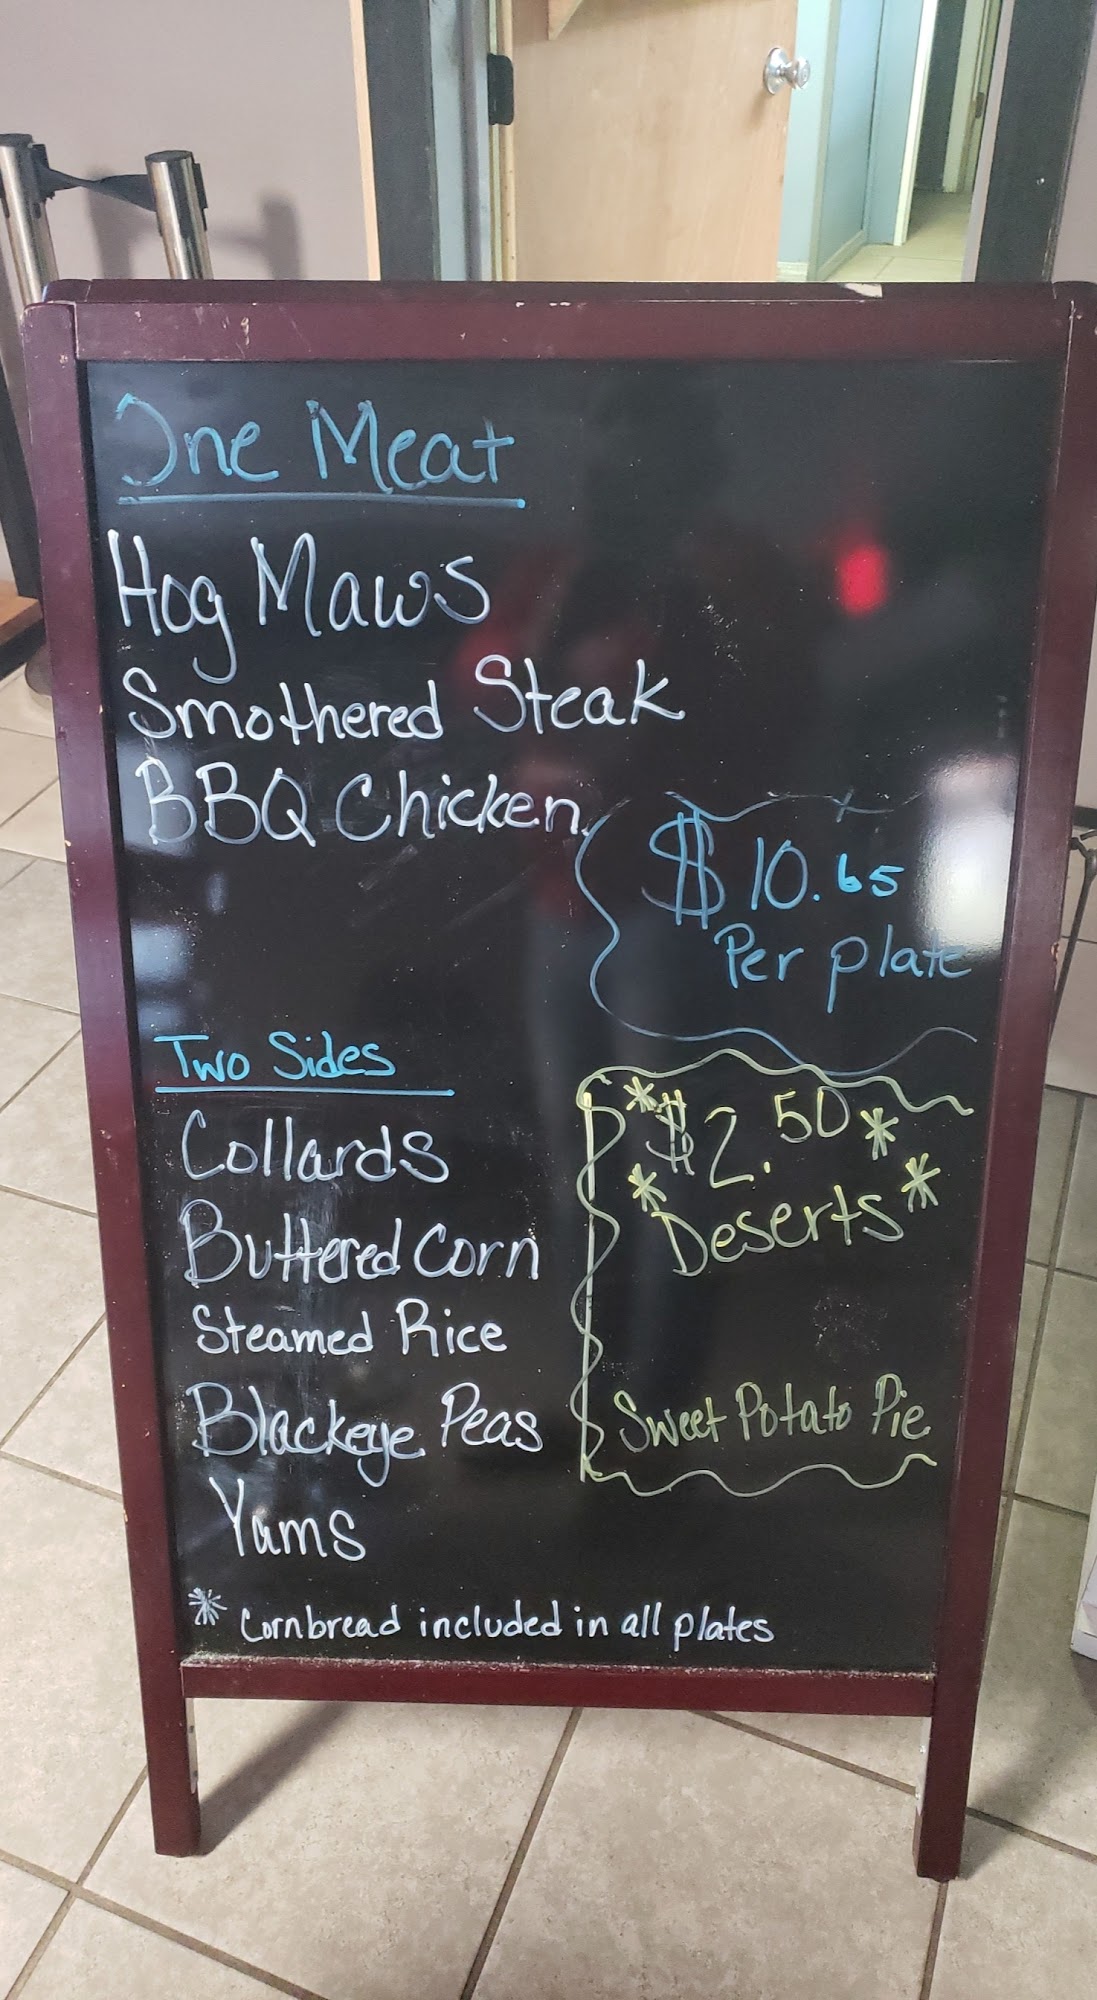 One Meat
Hog Maws
Smothered Steak
BBQ Chicken
$10.65
Per plate
Two Sides
Collards
Buttered Corn
Steamed Rice
Blackeye Peas
Yams
*$2.50*
*Deserts*
Sweet Potato Pie
* Cornbread included in all plates